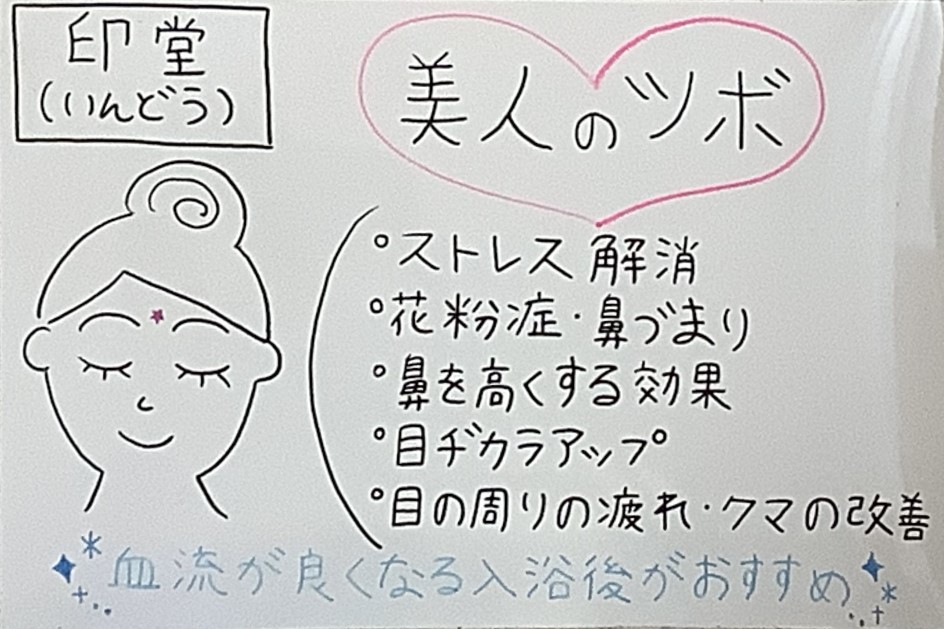 印堂
(いんどう)
美人のツボ
°ストレス解消
°花粉症・鼻づまり
°鼻を高くする効果
°目ヂカラアップ
°目の周りの疲れ・クマの改善
血流が良くなる入浴後がおすすめ